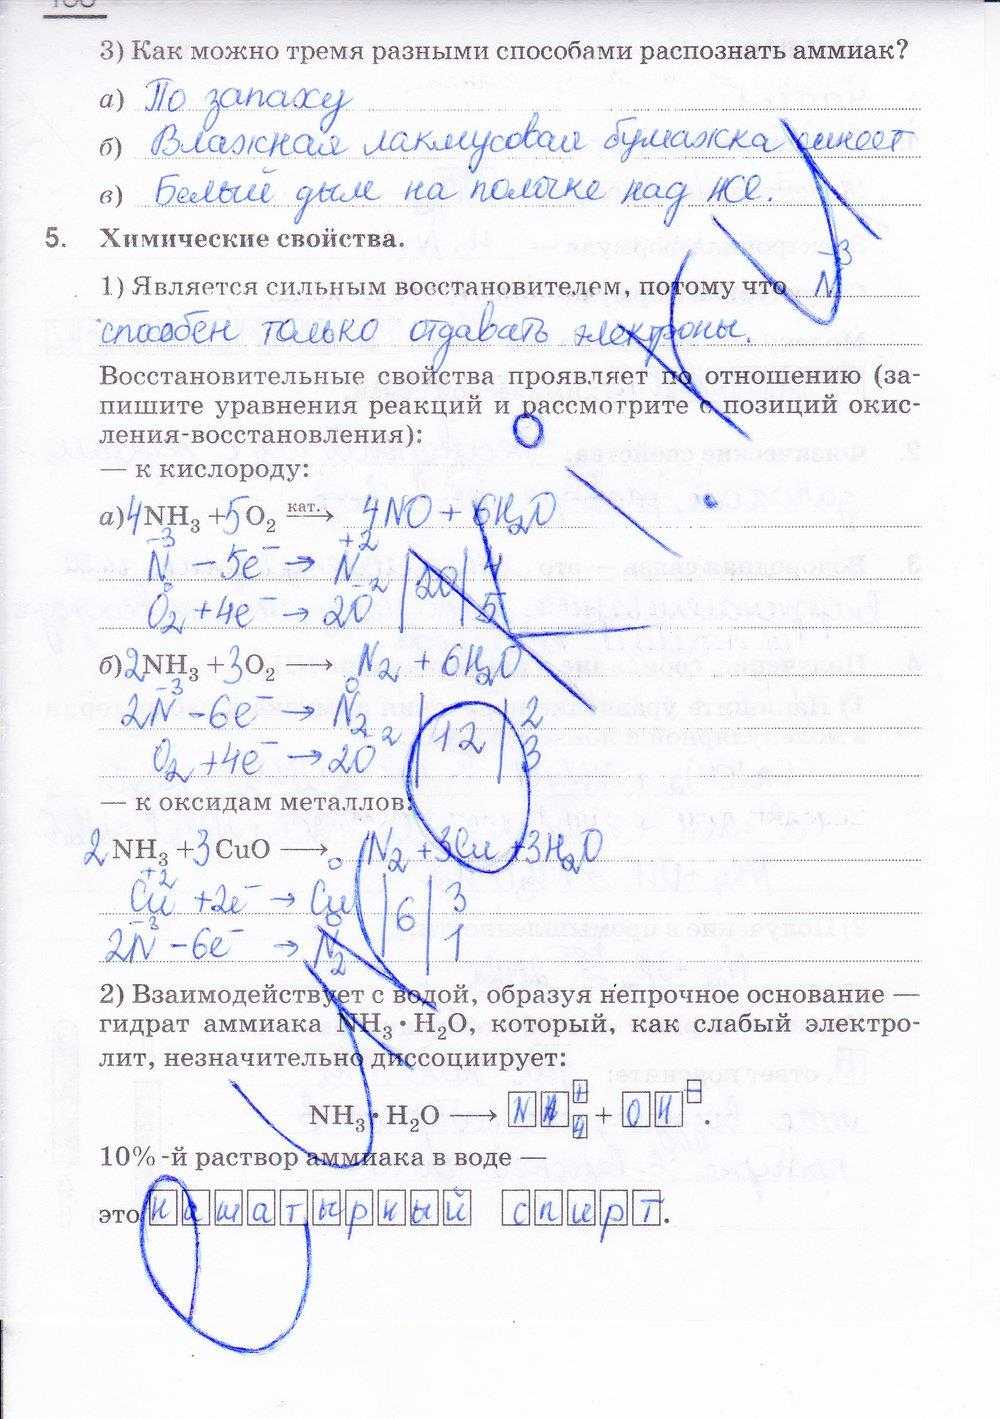 3) Как можно тремя разными способами распознать аммиак?
а) По запаху
б) Влажная лакмусовая бумажка синеет
в) Белый дым на палочке над HCl.
5. Химические свойства.
1) Является сильным восстановителем, потому что N⁻³
способен только отдавать электроны.
Восстановительные свойства проявляет по отношению (за-
пишите уравнения реакций и рассмотрите с позиций окис-
ления-восстановления):
— к кислороду:
а) 4NH₃ + 5O₂ кат.→ 4NO + 6H₂O
N⁻³ – 5e⁻ → N⁺² | 20 | 4
O₂⁰ + 4e⁻ → 2O⁻² | 5
б) 2NH₃ + 3O₂ → N₂ + 6H₂O
2N⁻³ – 6e⁻ → N₂⁰ | 12 | 2
O₂ + 4e⁻ → 2O⁻² | 3
— к оксидам металлов:
2NH₃ + 3CuO → N₂ + 3Cu + 3H₂O
Cu⁺² + 2e⁻ → Cu⁰ | 6 | 3
2N⁻³ – 6e⁻ → N₂⁰ | 1
2) Взаимодействует с водой, образуя непрочное основание —
гидрат аммиака NH₃ · H₂O, который, как слабый электро-
лит, незначительно диссоциирует:
NH₃ · H₂O → NH₄⁺ + OH⁻.
10%-й раствор аммиака в воде —
это нашатырный спирт.